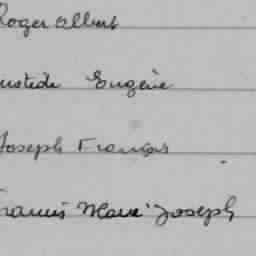 Roger Albert
Eugène
Joseph François
Francis Marie Joseph